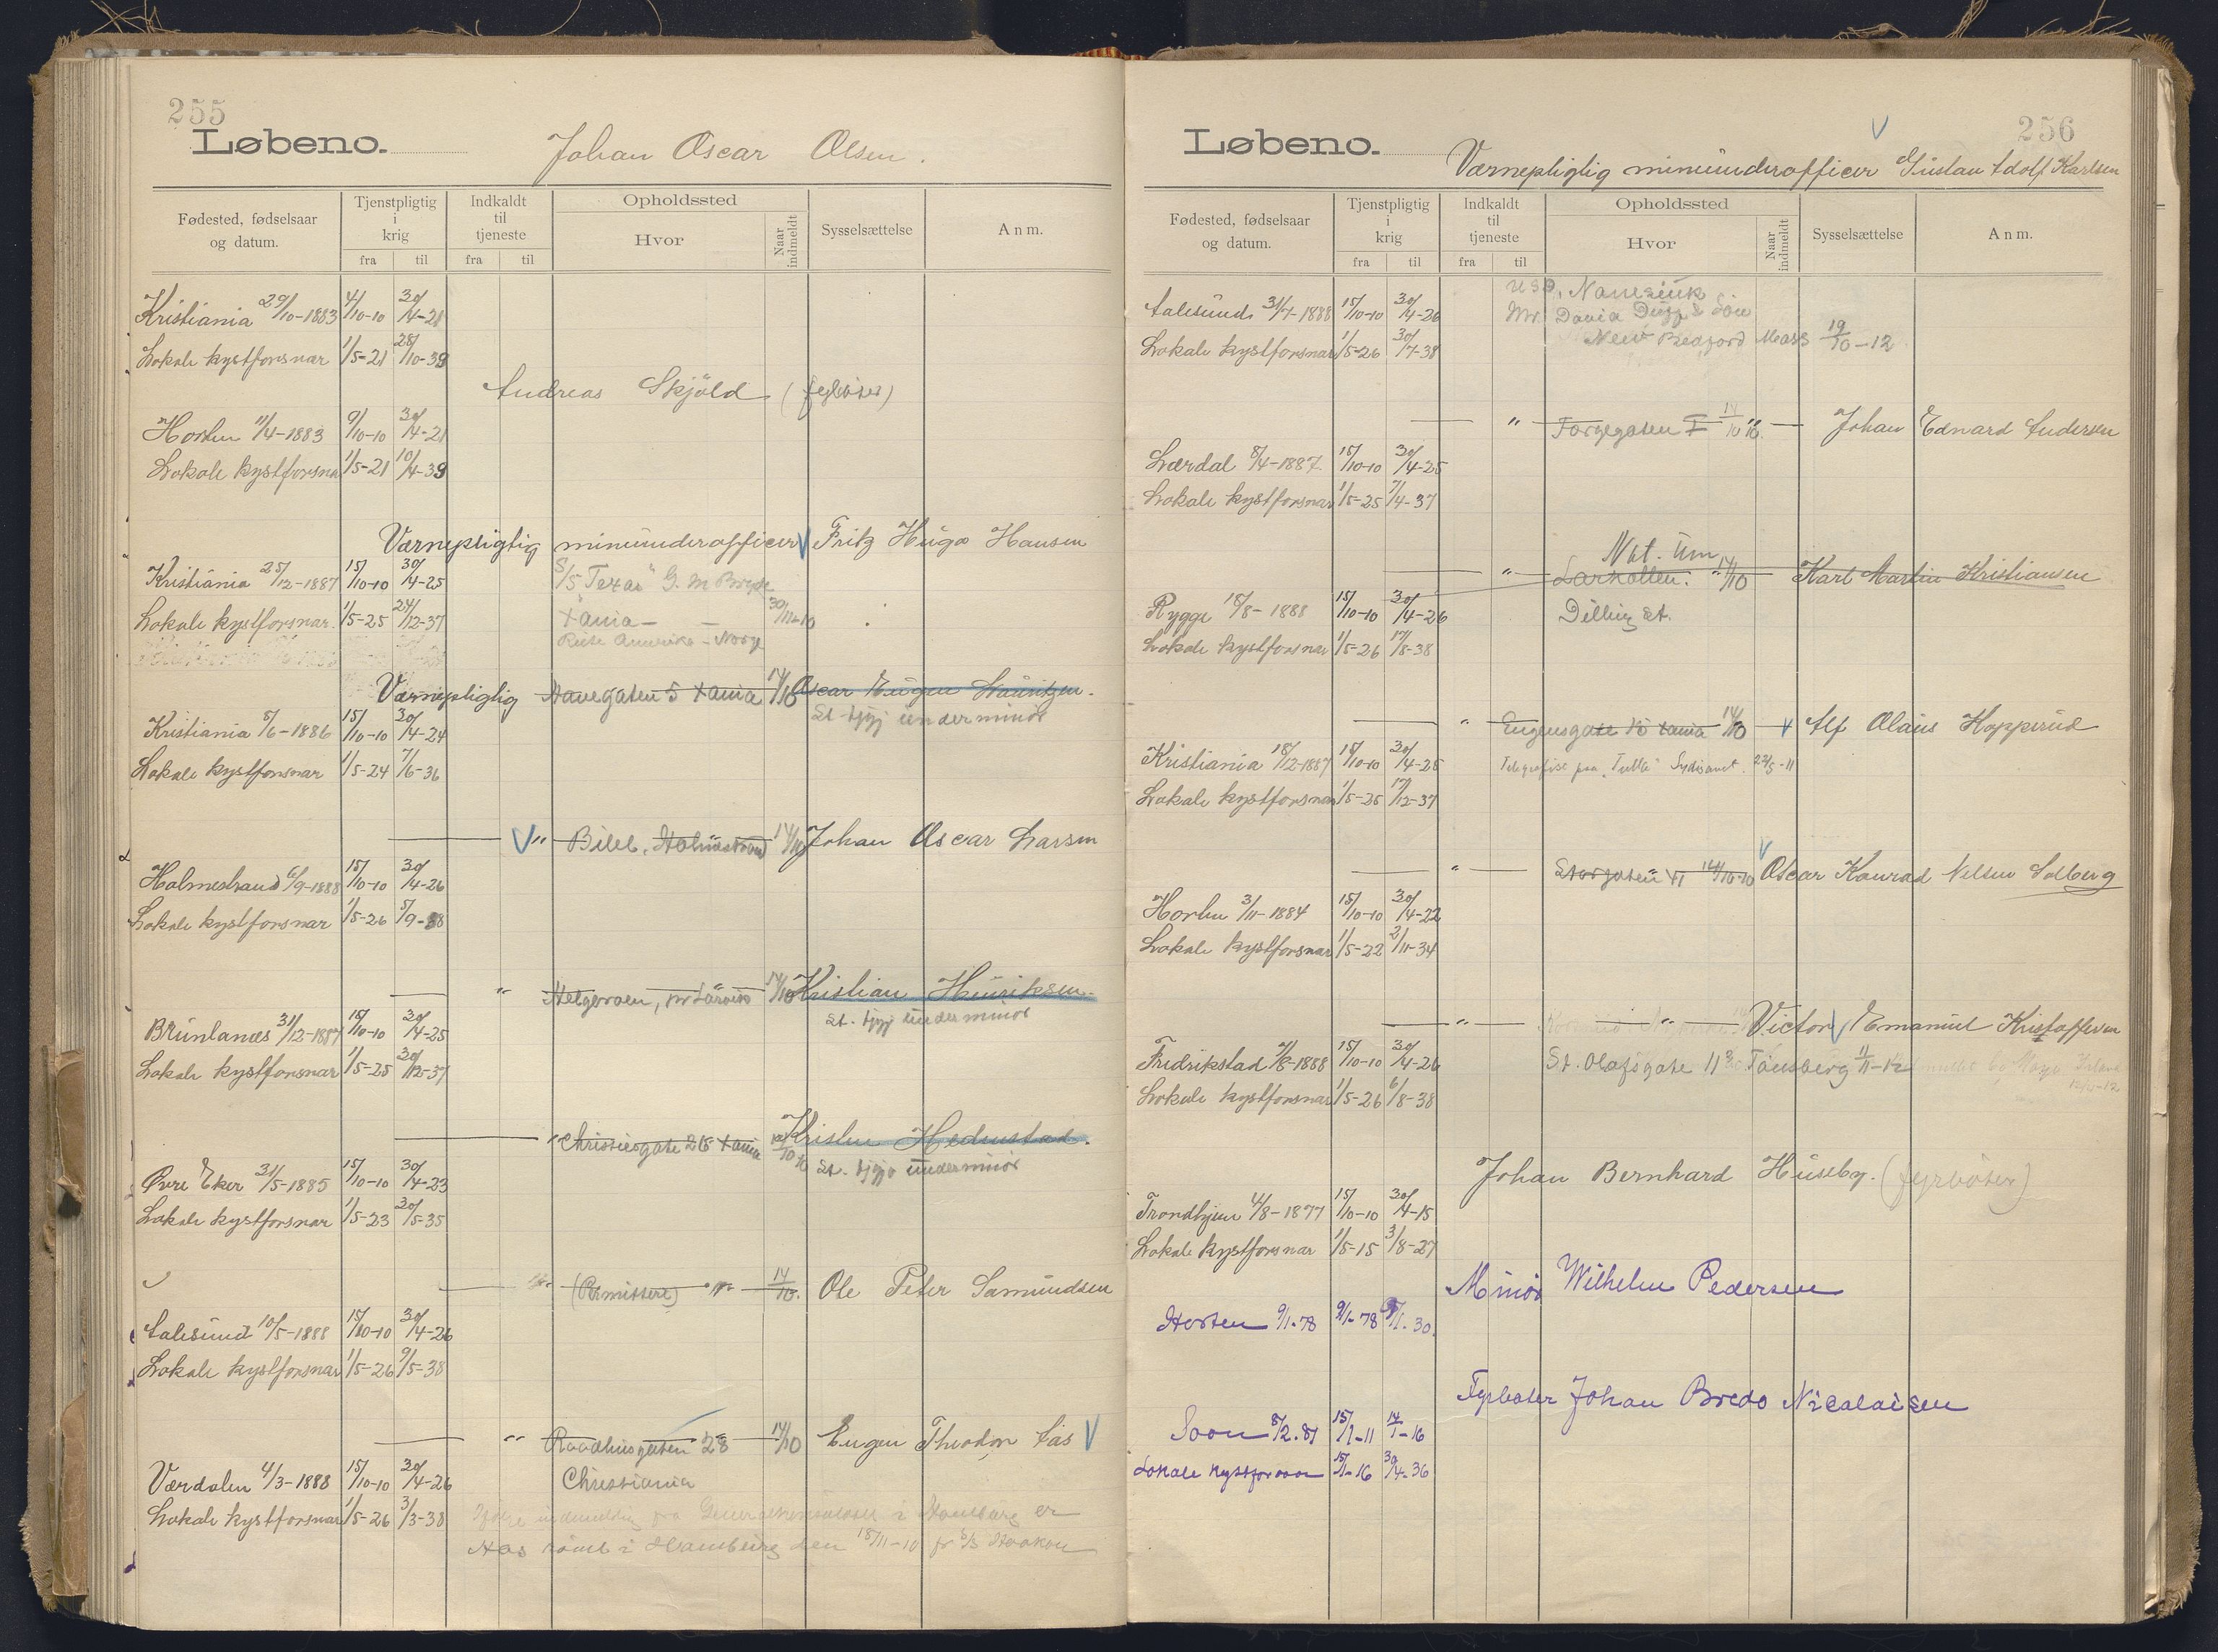 255
Løbeno.
Johan Oscar Olsen.
Fødested, fødselsaar og datum.
Tjenstpligtig i krig
fra til
Indkaldt til tjeneste
fra til
Opholdssted
Hvor
Naar indmeldt
Sysselsættelse
Anm.
Kristiania 29/10-1883 4/10-10 30/4-21
Lokale kystforsvar 1/5-21 28/10-39
Andreas Skjöld (fyrböter)
Horten 11/4-1883 9/10-10 30/4-21
Lokale kystforsva 1/5-21 10/4-39
Værnepligtig minunderofficer V Fritz Hugo Hansen
Kristiania 25/12-1887 15/10-10 30/4-25 S/S "Texas" G. M Bryde
Lokale kystforsvar. 1/5-25 24/12-37 Xania - 30/11-10
Reise Amerika - Norge
Værnepligtig Xania 14/10 Oscar Eugen Lauritzen.
St. tjgj underminør
Kristiania 8/6-1886 15/10-10 30/4-24
Lokale kystforsvar 1/5-24 7/6-36
V " Holmestrand 14/10 Johan Oscar Larsen
Holmestrand 6/9-1888 15/10-10 30/4-26
Lokale kystforsvar 1/5-26 5/9-38
" Helgeroen, pr Larvik 14/10 Kristian Henriksen
St. tjgj underminør
Brunlanæs 31/12-1887 15/10-10 30/4-25
Lokale kystforsvar 1/5-25 30/12-37
" Christiesgate 26 Xania Kristen Hedenstad.
St. tjgj underminør
Øvre Eker 31/5-1885 15/10-10 30/4-23
Lokale kystforsvar 1/5-23 30/5-35
(Permittert) 14/10. Ole Peter Samundsen
Aalesund 10/5-1888 15/10-10 30/4-26
Lokale kystforsvar 1/5-26 9/5-38
" Raadhusgaten 28 14/10 Eugen Theodor Aas V
Værdalen 4/3-1888 15/10-10 30/4-26 Christiania
Lokale kystforsvar 1/5-26 3/3-38 indmelding fra Generalkonsulatet i Hamburg er
Aas i Hamburg den 18/11-10 S/S Haakon
256
Løbeno.
V
Værnepligtig minunderofficer Gustav Adolf Karlsen
Fødested, fødselsaar og datum.
Tjenstpligtig i krig
fra til
Indkaldt til tjeneste
fra til
Opholdssted
Hvor
Naar indmeldt
Sysselsættelse
Anm.
Aalesund 31/7-1888 15/10-10 30/4-26 Mr. David Duff & Son
Lokale kystforsvar 1/5-26 30/7-38 New Bedford Mass 19/10-12
" Johan Edvard Andersen
Lærdal 8/4-1887 15/10-10 30/4-25
Lokale kystforsvar 1/5-25 7/4-37
" Larkollen. 14/10 Karl Martin Kristiansen
Rygge 18/8-1888 15/10-10 30/4-26 Dilling st.
Lokale kystforsvar 1/5-26 17/8-38
" Eugensgate Xania 14/10 V Alf Olaus Hopperud
Kristiania 18/12-1887 15/10-10 30/4-25 Telegrafist paa 23/5-11
Lokale kystforsvar 1/5-25 17/12-37
" Storgaten 14/10-10 V Oscar Konrad Nelsen Solberg
Horten 3/11-1884 15/10-10 30/4-22
Lokale kystforsvar 1/5-22 2/11-34
" Victor V Emanuel Kristoffersen
Fredrikstad 7/8-1888 15/10-10 30/4-26 St. Olafsgate 11 Tønsberg 11/11-12
Lokale kystforsvar 1/5-26 6/8-38
Johan Bernhard Huseby. (fyrböter)
Trondhjem 4/8-1877 15/10-10 30/4-15
Lokale kystforsvar 1/5-15 3/8-27
Minør Wilhelm Pedersen
Horten 9/1-78 9/1-78 8/1.30.
Fyrbøter Johan Bredo Nicolaisen
Soon 8/2.81 15/1-11 14/1-16
Lokale kystforsvar 15/1-16 30/4-36